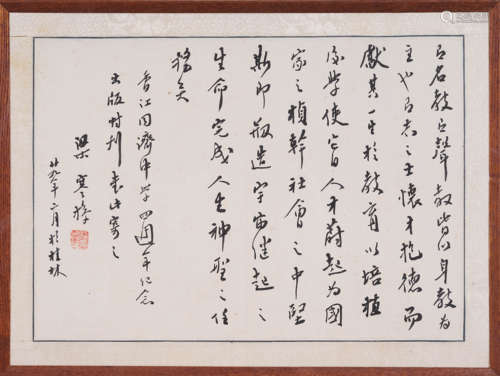 言名教之聲教皆以身教為
主也有志之士懷才抱德而
獻其一生於教育以培植
後學使官人才蔚起為國
家之楨幹社會之中堅
斯即創造宇宙繼起之
生命完成人生神聖之任
務矣
香江同濟中學四週年紀念
出版特刊書此寄之
梁寒操
廿九年二月於桂林